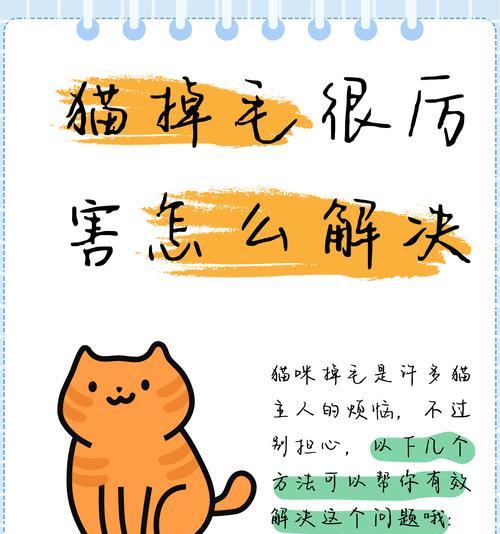 猫掉毛很厉
害怎么解决
猫咪掉毛是许多猫
主人的烦恼，不过
别担心，以下几个
方法可以帮你有效
解决这个问题哦：